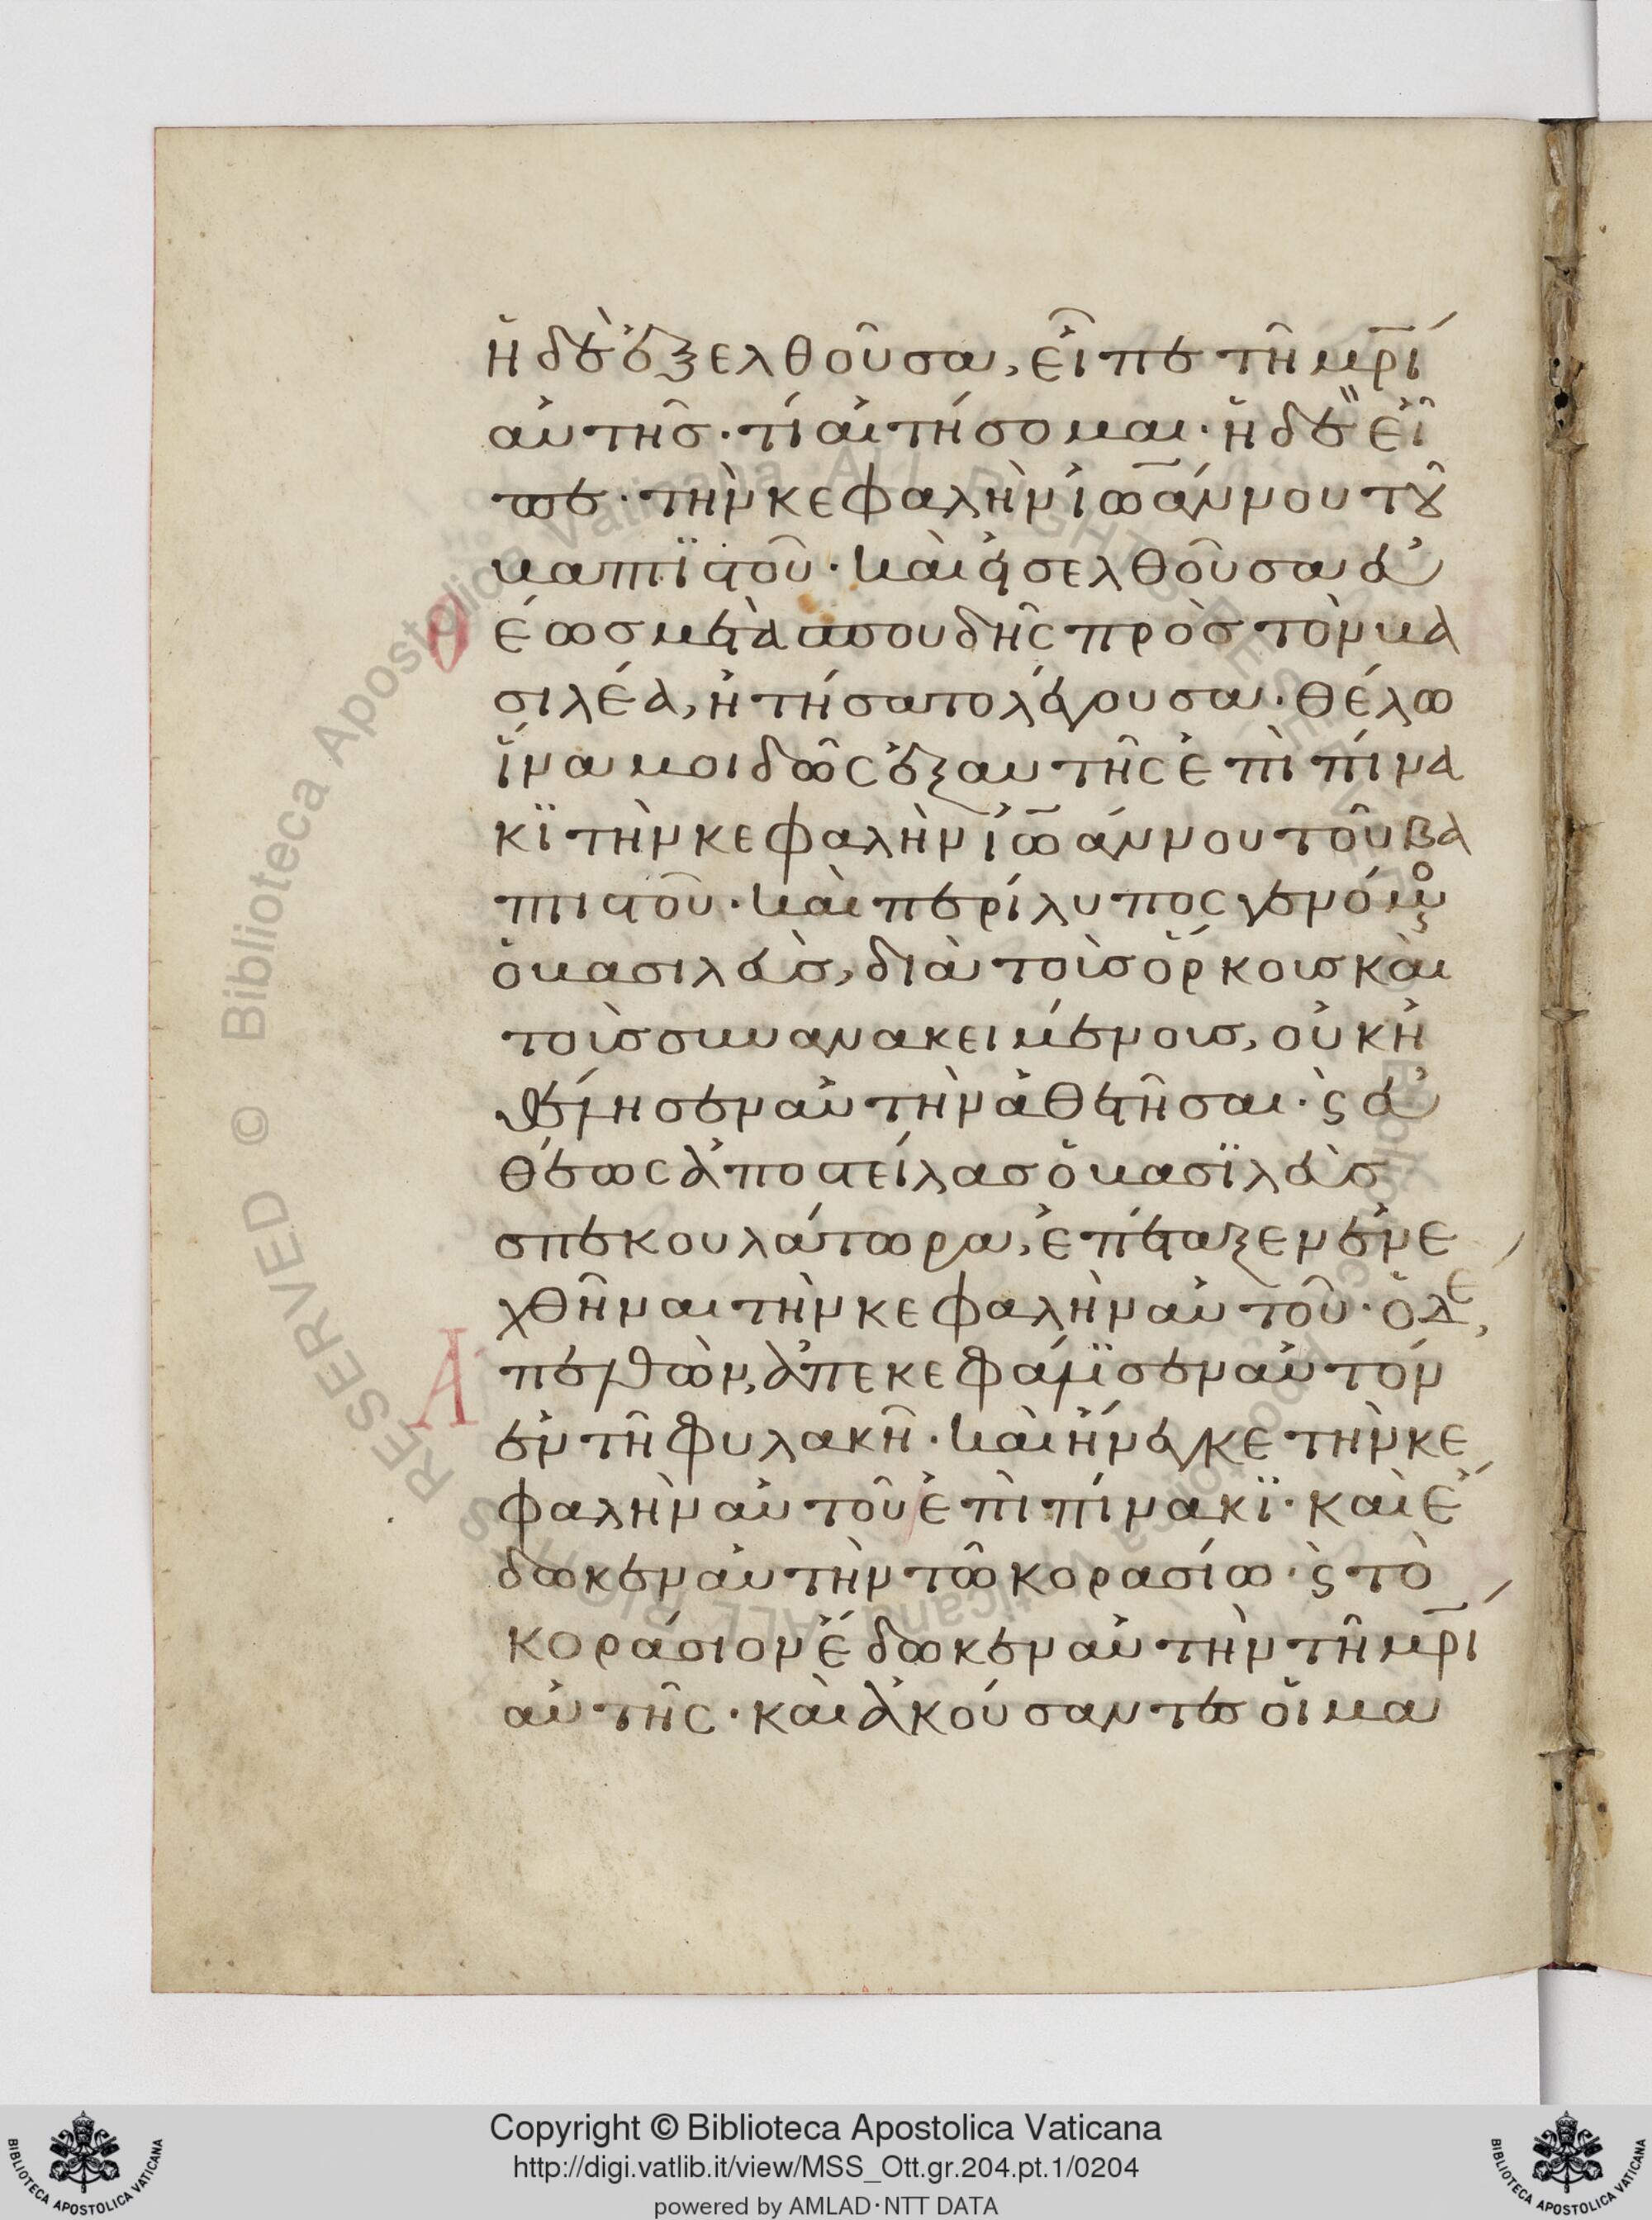 ἡ δὲ ἐξελθοῦσα, εἶπε τῆ μρ̅ί
αὐτῆσ· τί αἰτήσομαι· ἡ δὲ εἶ
πε· τὴν κεφαλὴν ἰω̅άννου τȣ͂
βαπτϊστοῦ· καὶ εἰσελθοῦσα εὐ
θέωσ μετὰ σπουδῆς πρὸσ τὸν βα
σιλέα, ἠτήσατο λέγουσα· θέλω
ἵνα μοι δῶς ἐξαυτῆς ἐπὶ πίνα
κϊ τὴν κεφαλὴν ἰω̅άννου τοῦ βα
πτιστοῦ· καὶ περίλυπος γενόμενος
ὁ βασιλεὺσ, διὰ τοὺσ ὅρκουσ καὶ
τοὺσ συνανακειμένουσ, οὐκ ἠ
θέλησεν αὐτὴν ἀθετῆσαι· ϛ̀ εὐ
θέως ἀποστείλασ ὁ βασϊλεὺσ
σπεκουλάτωρα, ἐπέταξεν ἐνε
χθῆναι τὴν κεφαλὴν αὐτοῦ· ὁ δὲ
ἀπελθὼν, ἀπεκεφάλϊσεν αὐτόν
ἐν τῆ φυλακῆ· καὶ ἤνεγκε τὴν κε
φαλὴν αὐτοῦ ἐπὶ πίνακϊ· καὶ ἔ
δωκεν αὐτὴν τῶ κορασίω· ϛ̀ τὸ
κοράσιον ἔδωκεν αὐτὴν τῆ μρ̅ί
αὐτῆς· καὶ ἀκούσαντες οἱ μα
Copyright © Biblioteca Apostolica Vaticana
http://digi.vatlib.it/view/MSS_Ott.gr.204.pt.1/0204
powered by AMLAD·NTT DATA